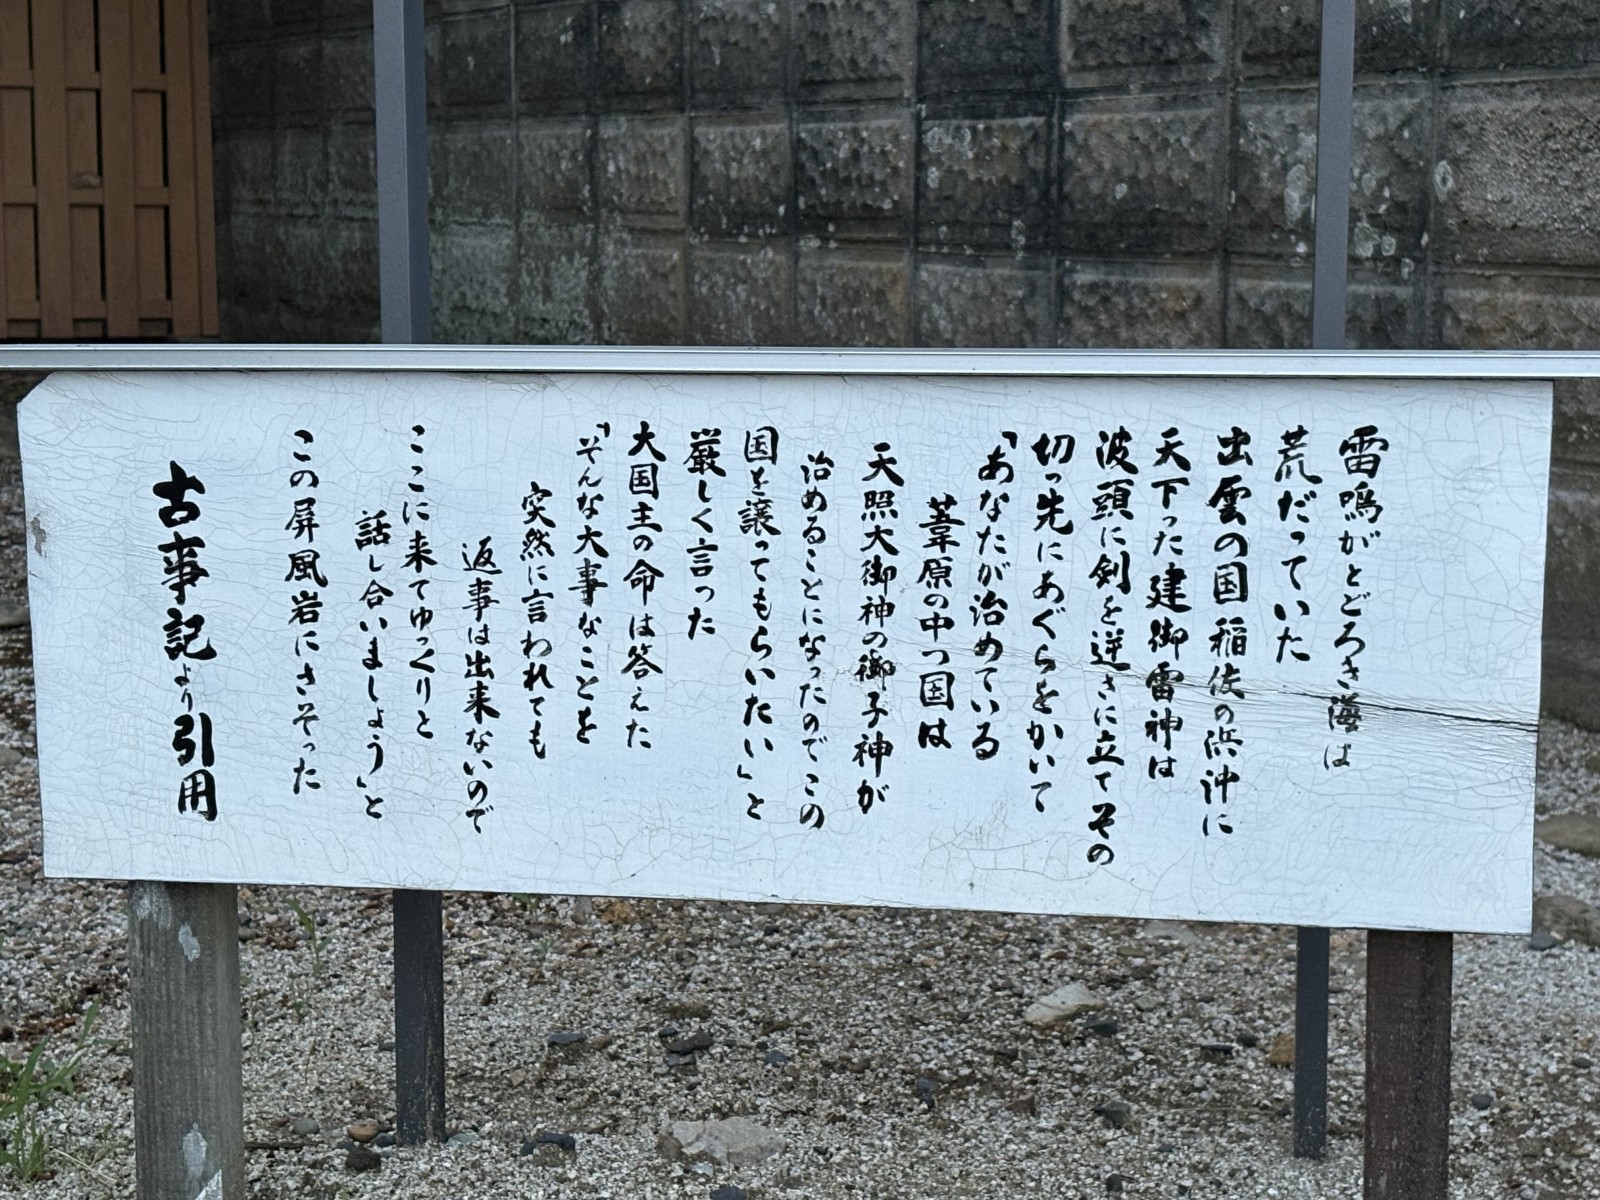 雷鳴がとどろき海は
荒だっていた
出雲の国稲佐の浜沖に
天下った建御雷神は
波頭に剣を逆さに立てその
切っ先にあぐらをかいて
「あなたが治めている
葦原の中つ国は
天照大御神の御子神が
治めることになったのでこの
国を譲ってもらいたい」と
厳しく言った
大国主の命は答えた
「そんな大事なことを
突然に言われても
返事は出来ないので
ここに来てゆっくりと
話し合いましょう」と
この屏風岩にさそった
古事記より引用